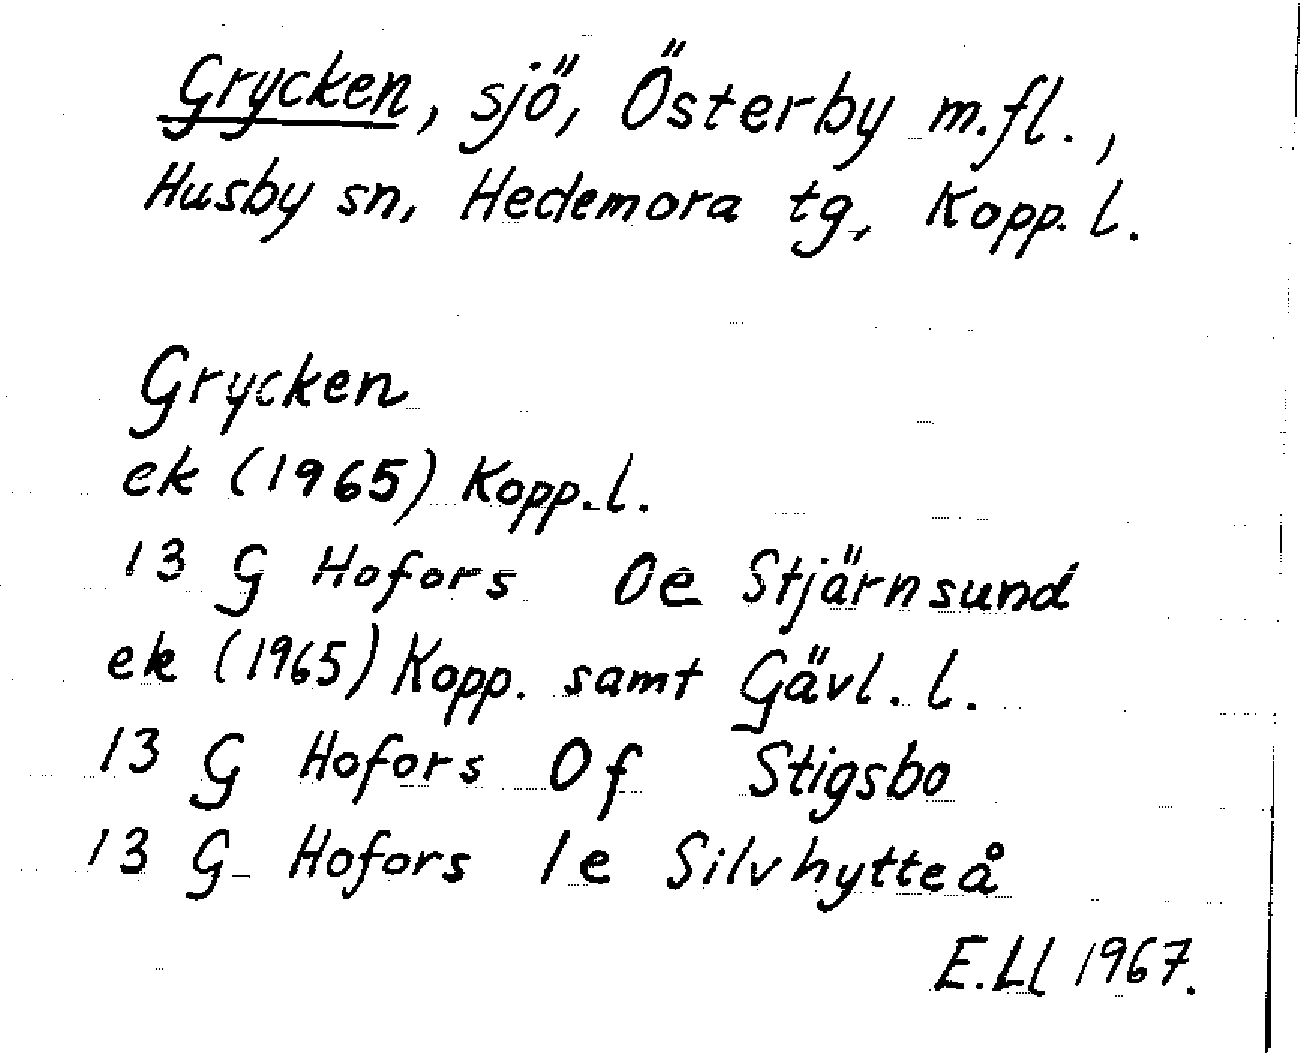 Grycken, sjö, Österby m.fl.,
Husby sn, Hedemora tg, Kopp. l.
Grycken
ek (1965) Kopp. l.
13 G Hofors 0e Stjärnsund
ek (1965) Kopp. samt Gävl. l.
13 G Hofors 0f Stigsbo
13 G Hofors 1e Silvhytteå
E.Ll 1967.